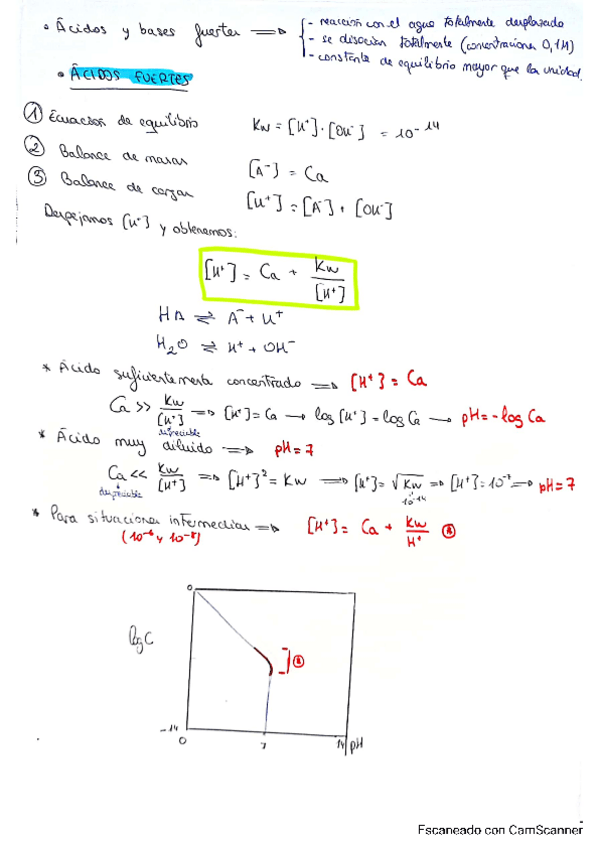 • Ácidos y bases fuertes ⟹ { - reacción con el agua totalmente desplazado
- se disocian totalmente (concentraciones 0,1M)
- constante de equilibrio mayor que la unidad.
• ÁCIDOS FUERTES
① Ecuación de equilibrio Kw = [H⁺]·[OH⁻] = 10⁻¹⁴
② Balance de masas [A⁻] = Ca
③ Balance de cargas [H⁺] = [A⁻] + [OH⁻]
Despejamos [H⁺] y obtenemos:
[H⁺] = Ca + Kw/[H⁺]
HA ⇌ A⁻ + H⁺
H₂O ⇌ H⁺ + OH⁻
* Ácido suficientemente concentrado ⟹ [H⁺] = Ca
Ca >> Kw/[H⁺] ⟹ [H⁺] = Ca → log [H⁺] = log Ca → pH = -log Ca
despreciable
* Ácido muy diluido ⟹ pH = 7
Ca << Kw/[H⁺] ⟹ [H⁺]² = Kw ⟹ [H⁺] = √Kw ⟹ [H⁺] = 10⁻⁷ ⟹ pH = 7
despreciable 10⁻¹⁴
* Para situaciones intermedias ⟹ [H⁺] = Ca + Kw/H⁺
(10⁻⁶ y 10⁻⁸)
0
log C
-14
0 7 14 pH
Escaneado con CamScanner